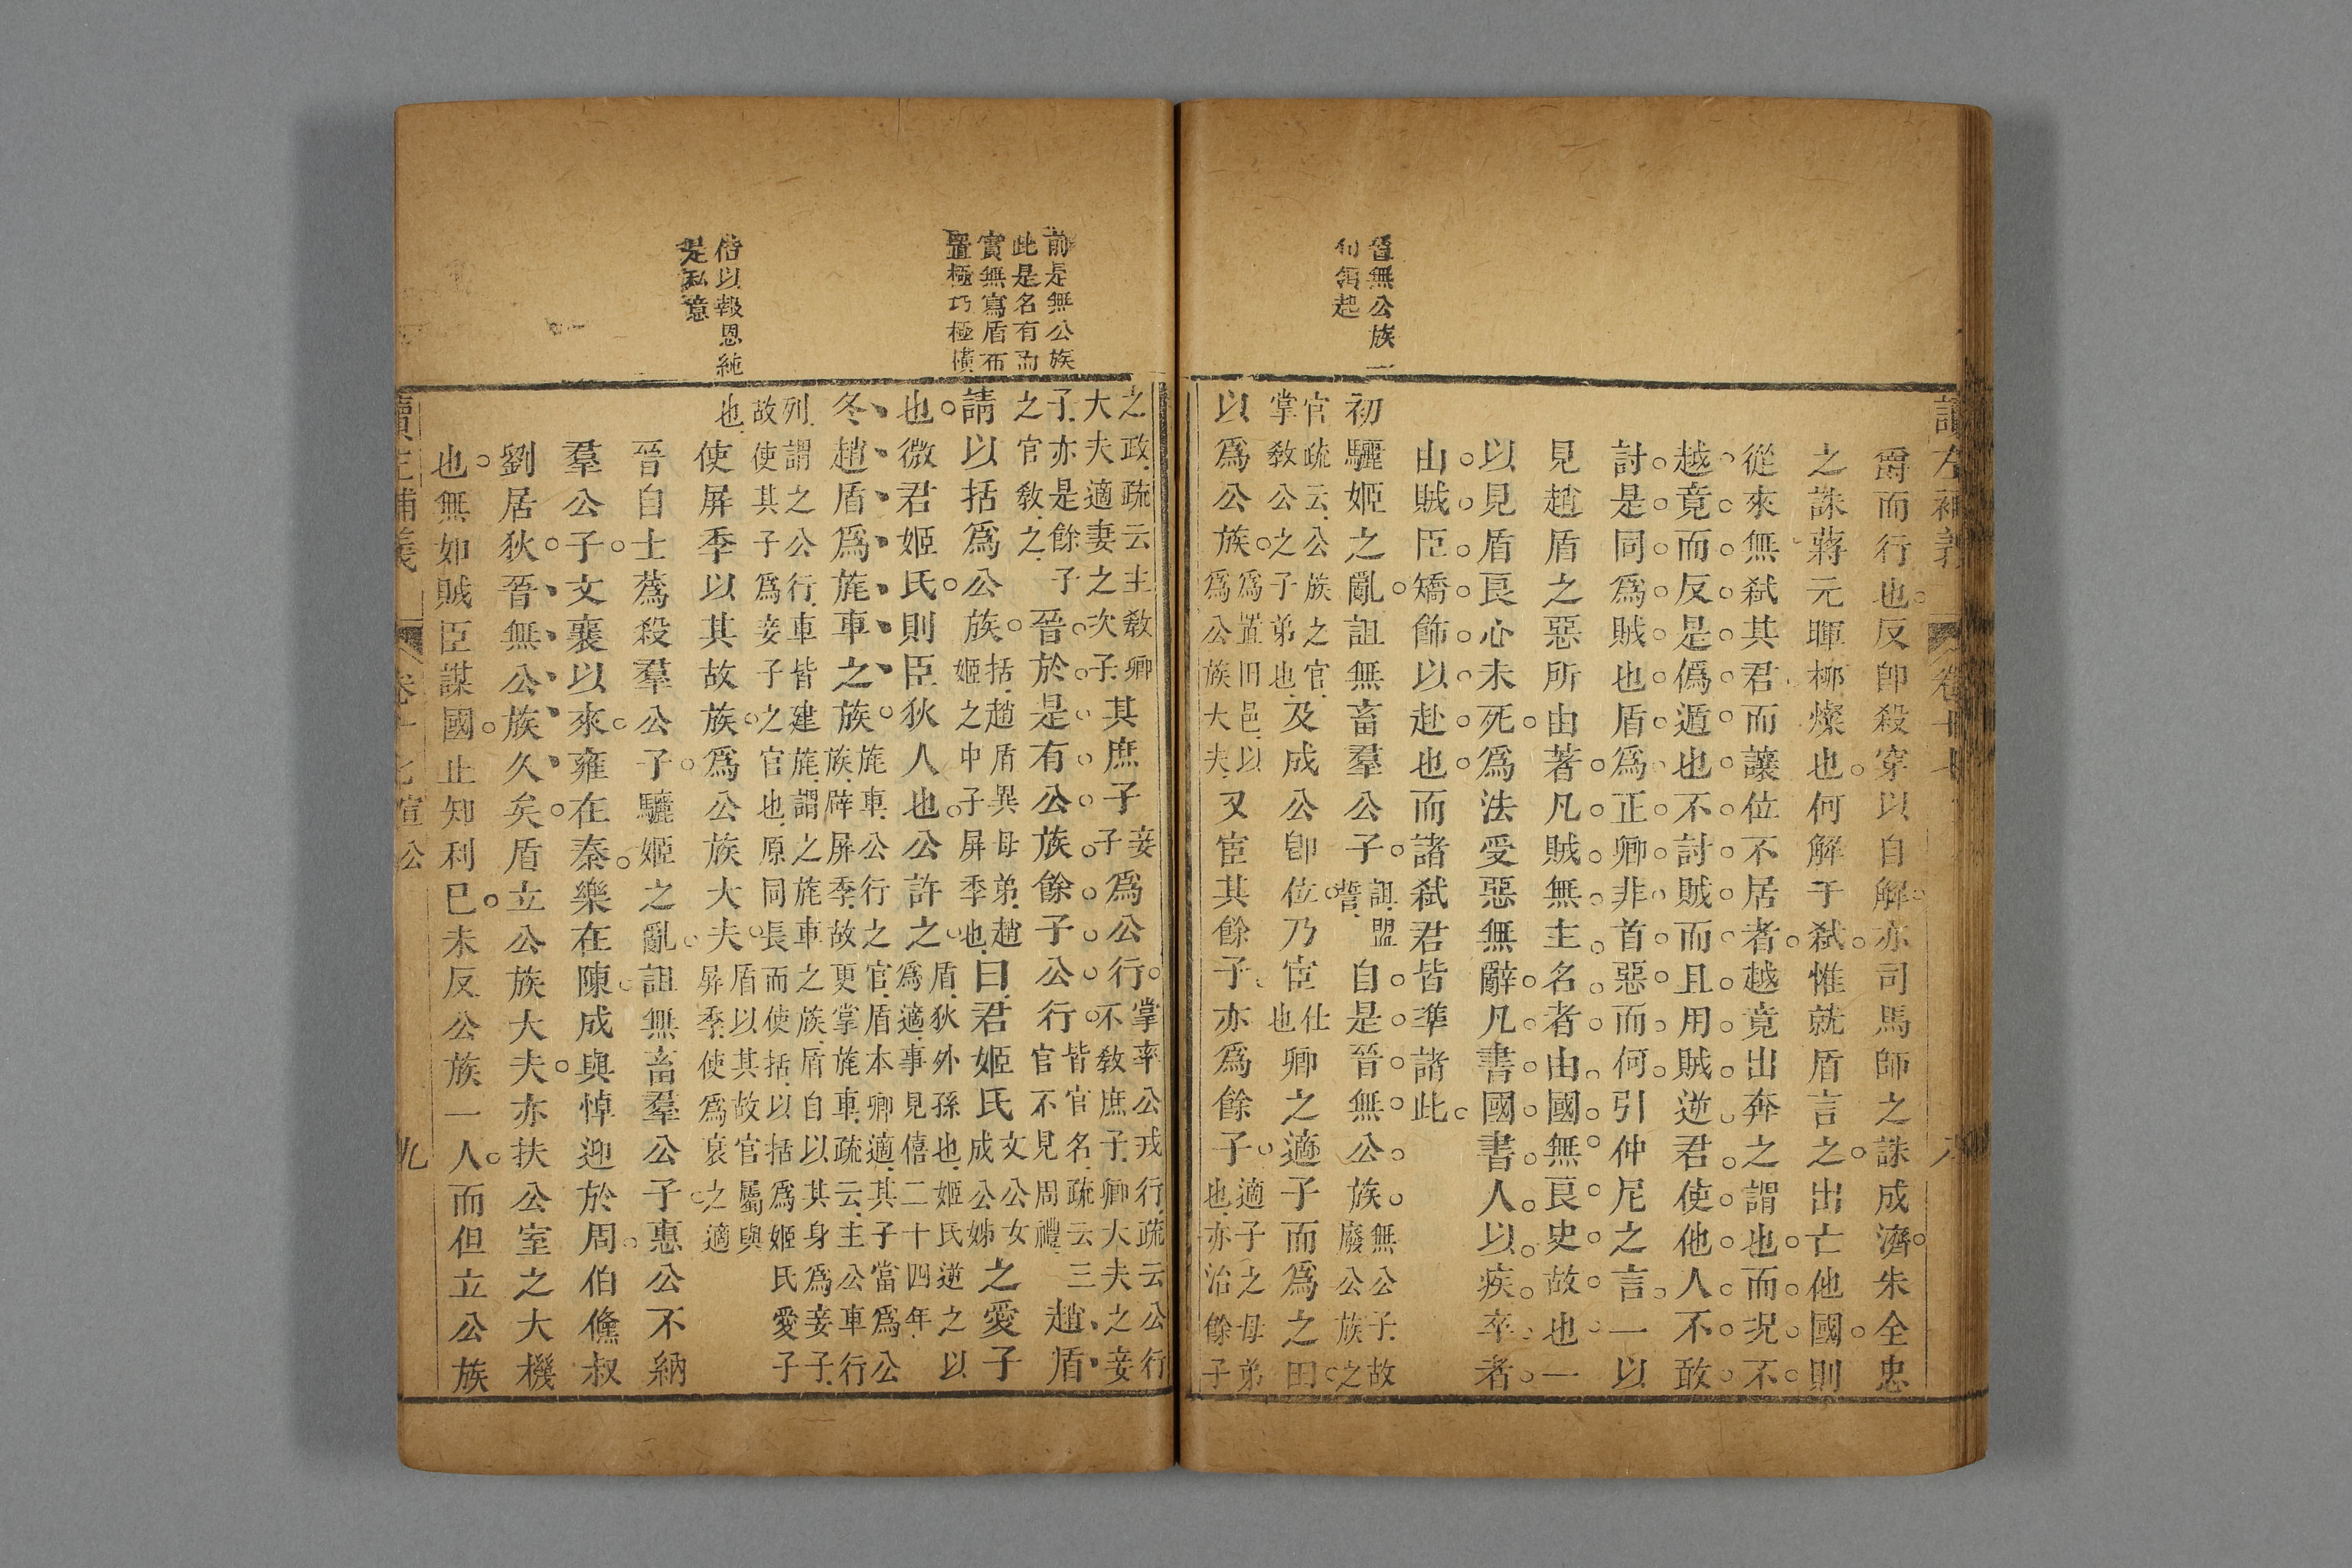 讀左補義
卷十七
八
爵而行也反卽殺穿以自解亦司馬師之誅成濟朱全忠
之誅蔣元暉栁燦也何解于弒惟就盾言之出亡他國則
從來無弒其君而讓位不居者越竟出奔之謂也而況不
越竟而反是僞遁也不討賊而且用賊逆君使他人不敢
討是同爲賊也盾爲正卿非首惡而何引仲尼之言一以
見趙盾之惡所由著凡賊無主名者由國無良史故也一
以見盾良心未死爲法受惡無辭凡書國書人以疾卒者
山賊臣矯飾以赴也而諸弒君皆準諸此
晉無公族一
句領起
初驪姬之亂詛無畜羣公子詛盟誓自是晉無公族無公子故廢公族之
官疏云公族之官掌敎公之子弟也及成公卽位乃宦仕也卿之適子而爲之田
以爲公族爲置田邑以爲公族大夫又宦其餘子亦爲餘子適子之母弟也亦治餘子
前是無公族
此是名有而
實無寫盾布
置極巧極橫
之政疏云主敎卿大夫適妻之次子其庶子妾子爲公行掌率公戎行疏云公行不敎庶子卿大夫之妾
子亦是餘子之官敎之晉於是有公族餘子公行皆官名疏云三官不見周禮趙盾
請以括爲公族括趙盾異母弟趙姬之中子屏季也曰君姬氏文公女成公姊之愛子
也微君姬氏則臣狄人也公許之盾狄外孫也姬氏逆之以爲適事見僖二十四年
冬趙盾爲旄車之族旄車公行之官盾本卿適其子當爲公族辟屏季故更掌旄車疏云主公車行
列謂之公行車皆建旄謂之旄車之族盾自以其身爲妾子故使其子爲妾子之官也原同長而使括以括爲姬氏愛子
借以報恩純
是私意
也使屏季以其故族爲公族大夫盾以其故官屬與屏季使爲衰之適
晉自士蔿殺羣公子驪姬之亂詛無畜羣公子惠公不納
羣公子文襄以來雍在秦樂在陳成與悼迎於周伯儵叔
劉居狄晉無公族久矣盾立公族大夫亦扶公室之大機
也無如賊臣謀國止知利己未反公族一人而但立公族
讀左補義
卷十七宣公
九